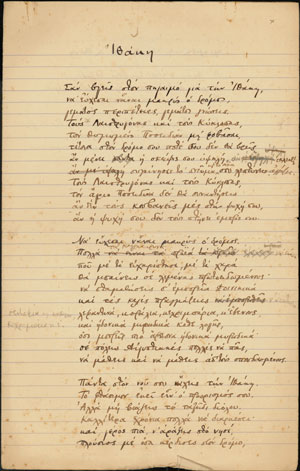 Ἰθάκη
Σὰν βγεῖς στὸν πηγαιμὸ γιὰ τὴν Ἰθάκη,
νὰ εὔχεσαι νἆναι μακρὺς ὁ δρόμος,
γεμάτος περιπέτειες, γεμάτος γνώσεις.
Τοὺς Λαιστρυγόνας καὶ τοὺς Κύκλωπας,
τὸν θυμωμένο Ποσειδῶνα μὴ φοβᾶσαι,
τέτοια στὸν δρόμο σου ποτέ σου δὲν θὰ βρεῖς,
ἂν μέν' ἡ σκέψις σου ὑψηλή, ἂν ἐκλεκτὴ
συγκίνησις τὸ πνεῦμα
Τοὺς Λαιστρυγόνας καὶ τοὺς Κύκλωπας,
τὸν ἄγριο Ποσειδῶνα δὲν θὰ συναντήσεις,
ἂν δὲν τοὺς κουβανεῖς μὲς στὴν ψυχή σου,
ἂν ἡ ψυχή σου δὲν τοὺς στήνει ἐμπρός σου.
Νὰ εὔχεσαι νἆναι μακρὺς ὁ δρόμος.
Πολλὰ
ποὺ μὲ τί εὐχαρίστησι, μὲ τί χαρὰ
θὰ μπαίνεις σὲ λιμένας πρωτοειδωμένους·
νὰ σταματήσεις σ' ἐμπορεῖα Φοινικικά,
καὶ τὲς καλὲς πραγμάτειες
καὶ ἡδονικὰ μυρωδικὰ κάθε λογῆς,
ὅσο μπορεῖς πιὸ ἄφθονα ἡδονικὰ μυρωδικά·
σὲ πόλεις Αἰγυπτιακὲς πολλὲς νὰ πᾷς,
νὰ μάθεις καὶ νὰ μάθεις ἀπ' τοὺς σπουδασμένους.
Πάντα στὸν νοῦ σου νἄχεις τὴν Ἰθάκη.
Τὸ φθάσιμον ἐκεῖ εἶν' ὁ προορισμός σου.
Ἀλλὰ μὴ βιάζεις τὸ ταξεῖδι διόλου.
Καλλίτερα χρόνια πολλὰ νὰ διαρκέσει·
καὶ γέρος πιὰ ν' ἀράξεις στὸ νησί,
πλούσιος μὲ ὅσα κέρδισες στὸν δρόμο,